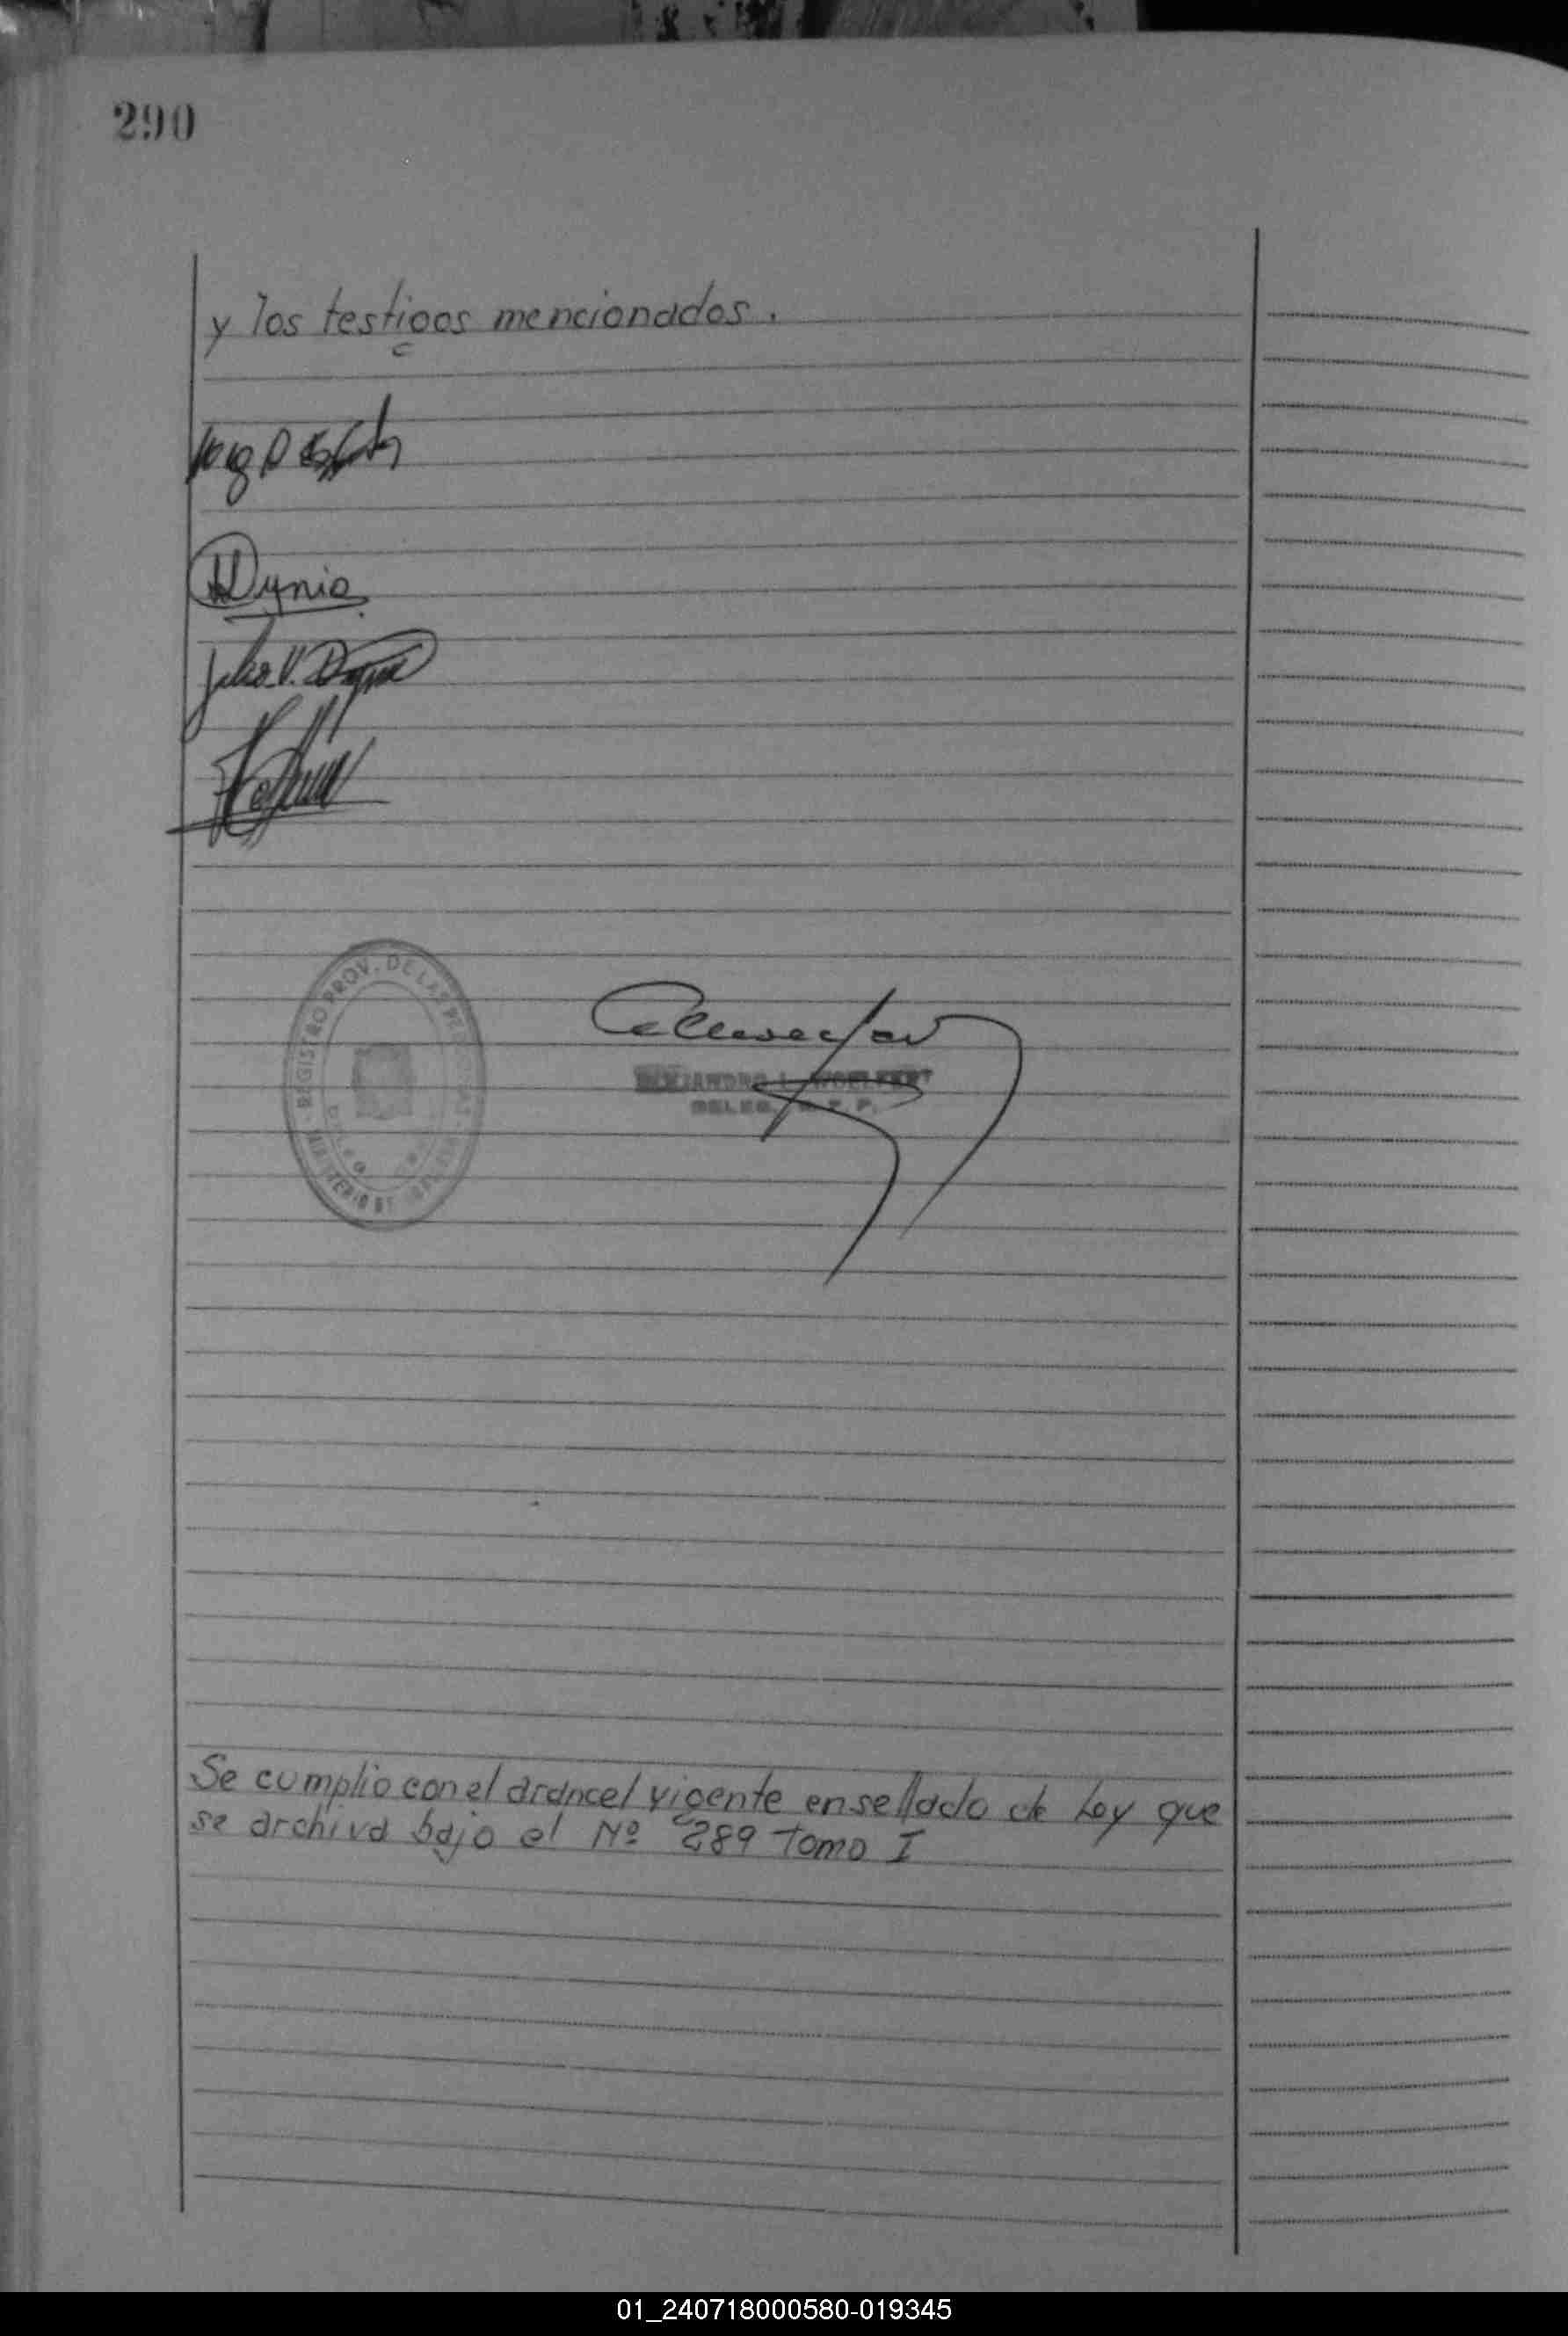 290
y los testigos mencionados.
Dynia
Julio V. Dynia
REGISTRO PROV. DE LAS PERSONAS
MINISTERIO DE
ALEJANDRO L. WOELFERT
DELEG. P.
Se cumplio con el arancel vigente en sellado de Ley que
se archiva bajo el Nº 289 Tomo I
01_240718000580-019345